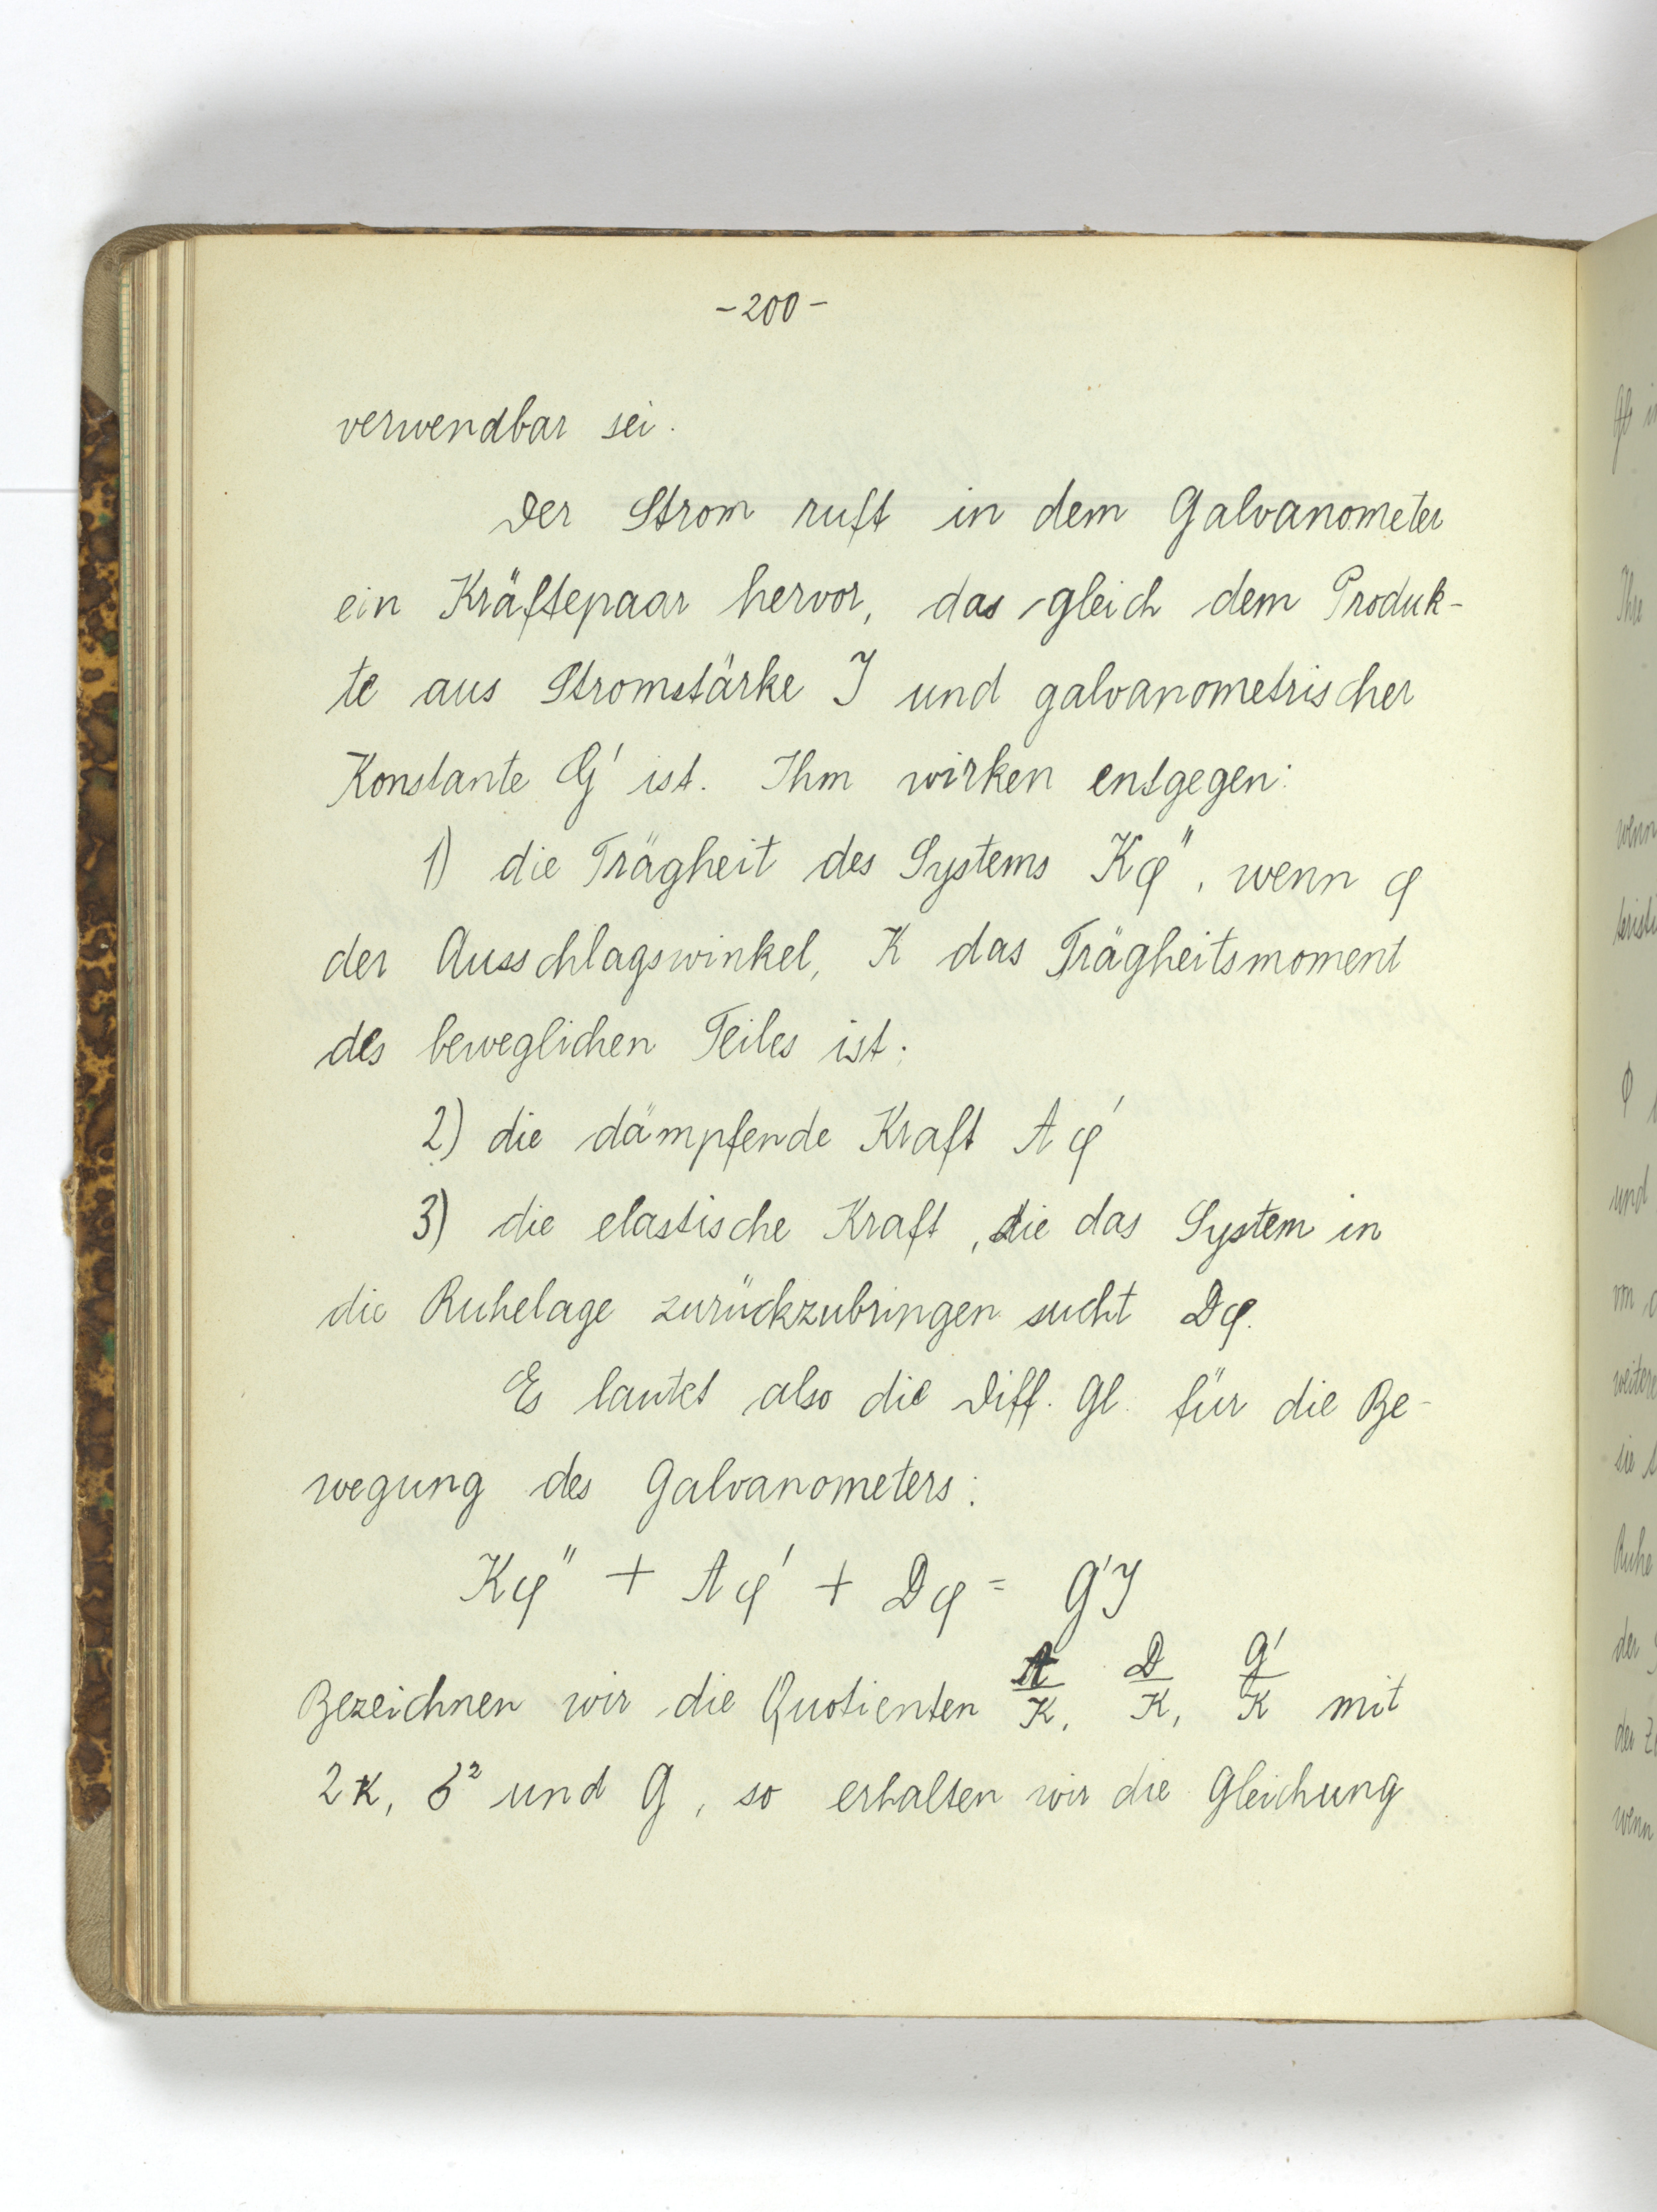 -200-
verwendbar sei.
Der Strom ruft in dem Galvanometer
ein Kräftepaar hervor, das gleich dem Produk-
te aus Stromstärke J und galvanometrischer
Konstante G' ist. Ihm wirken entgegen:
1) die Trägheit des Systems Kφ", wenn φ
der Ausschlagswinkel, K das Trägheitsmoment
des beweglichen Teiles ist;
2) die dämpfende Kraft Aφ'
3) die elastische Kraft, die das System in
die Ruhelage zurückzubringen sucht Dφ.
Es lautet also die Diff. Gl. für die Be-
wegung des Galvanometers:
Kφ" + Aφ' + Dφ = G'J
Bezeichnen wir die Quotienten A/K, D/K, G'/K mit
2κ, σ² und G, so erhalten wir die Gleichung